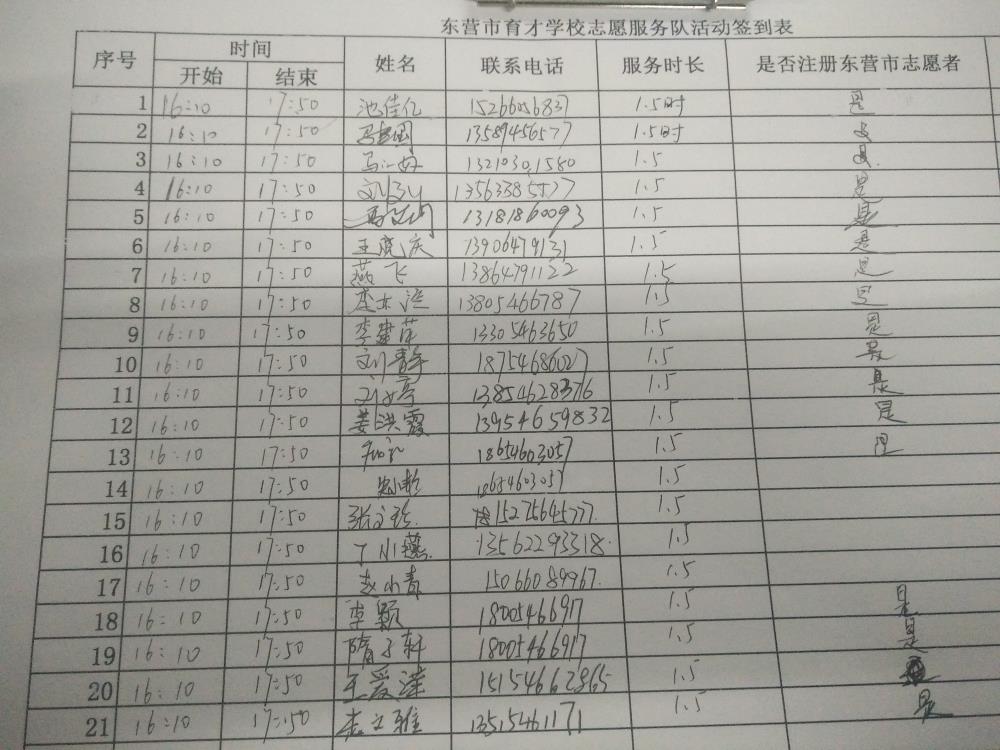 东营市育才学校志愿服务队活动签到表
序号 时间 姓名 联系电话 服务时长 是否注册东营市志愿者
开始 结束
1 16:10 17:50 池佳亿 15266056837 1.5时 是
2 16:10 17:50 13589456577 1.5时 是
3 16:10 17:50 13210301580 1.5 是
4 16:10 17:50 13563385527 1.5 是
5 16:10 17:50 13181860093 1.5 是
6 16:10 17:50 王晓庆 13906479131 1.5 是
7 16:10 17:50 燕飞 13864791122 1.5 是
8 16:10 17:50 13805466787 1.5 是
9 16:10 17:50 13305463650 1.5 是
10 16:10 17:50 刘青 18754686027 1.5 是
11 16:10 17:50 13854628376 1.5 是
12 16:10 17:50 姜洪霞 13954659832 1.5 是
13 16:10 17:50 18654603057 1.5 是
14 16:10 17:50 18654603057 1.5
15 16:10 17:50 15275645777 1.5
16 16:10 17:50 丁小燕 13562293318 1.5
17 16:10 17:50 赵小青 15066089967 1.5
18 16:10 17:50 李颖 18005466917 1.5 是
19 16:10 17:50 隋子轩 18005466917 1.5 是
20 16:10 17:50 王爱萍 15154662865 1.5
21 16:10 17:50 13515461171 1.5 是